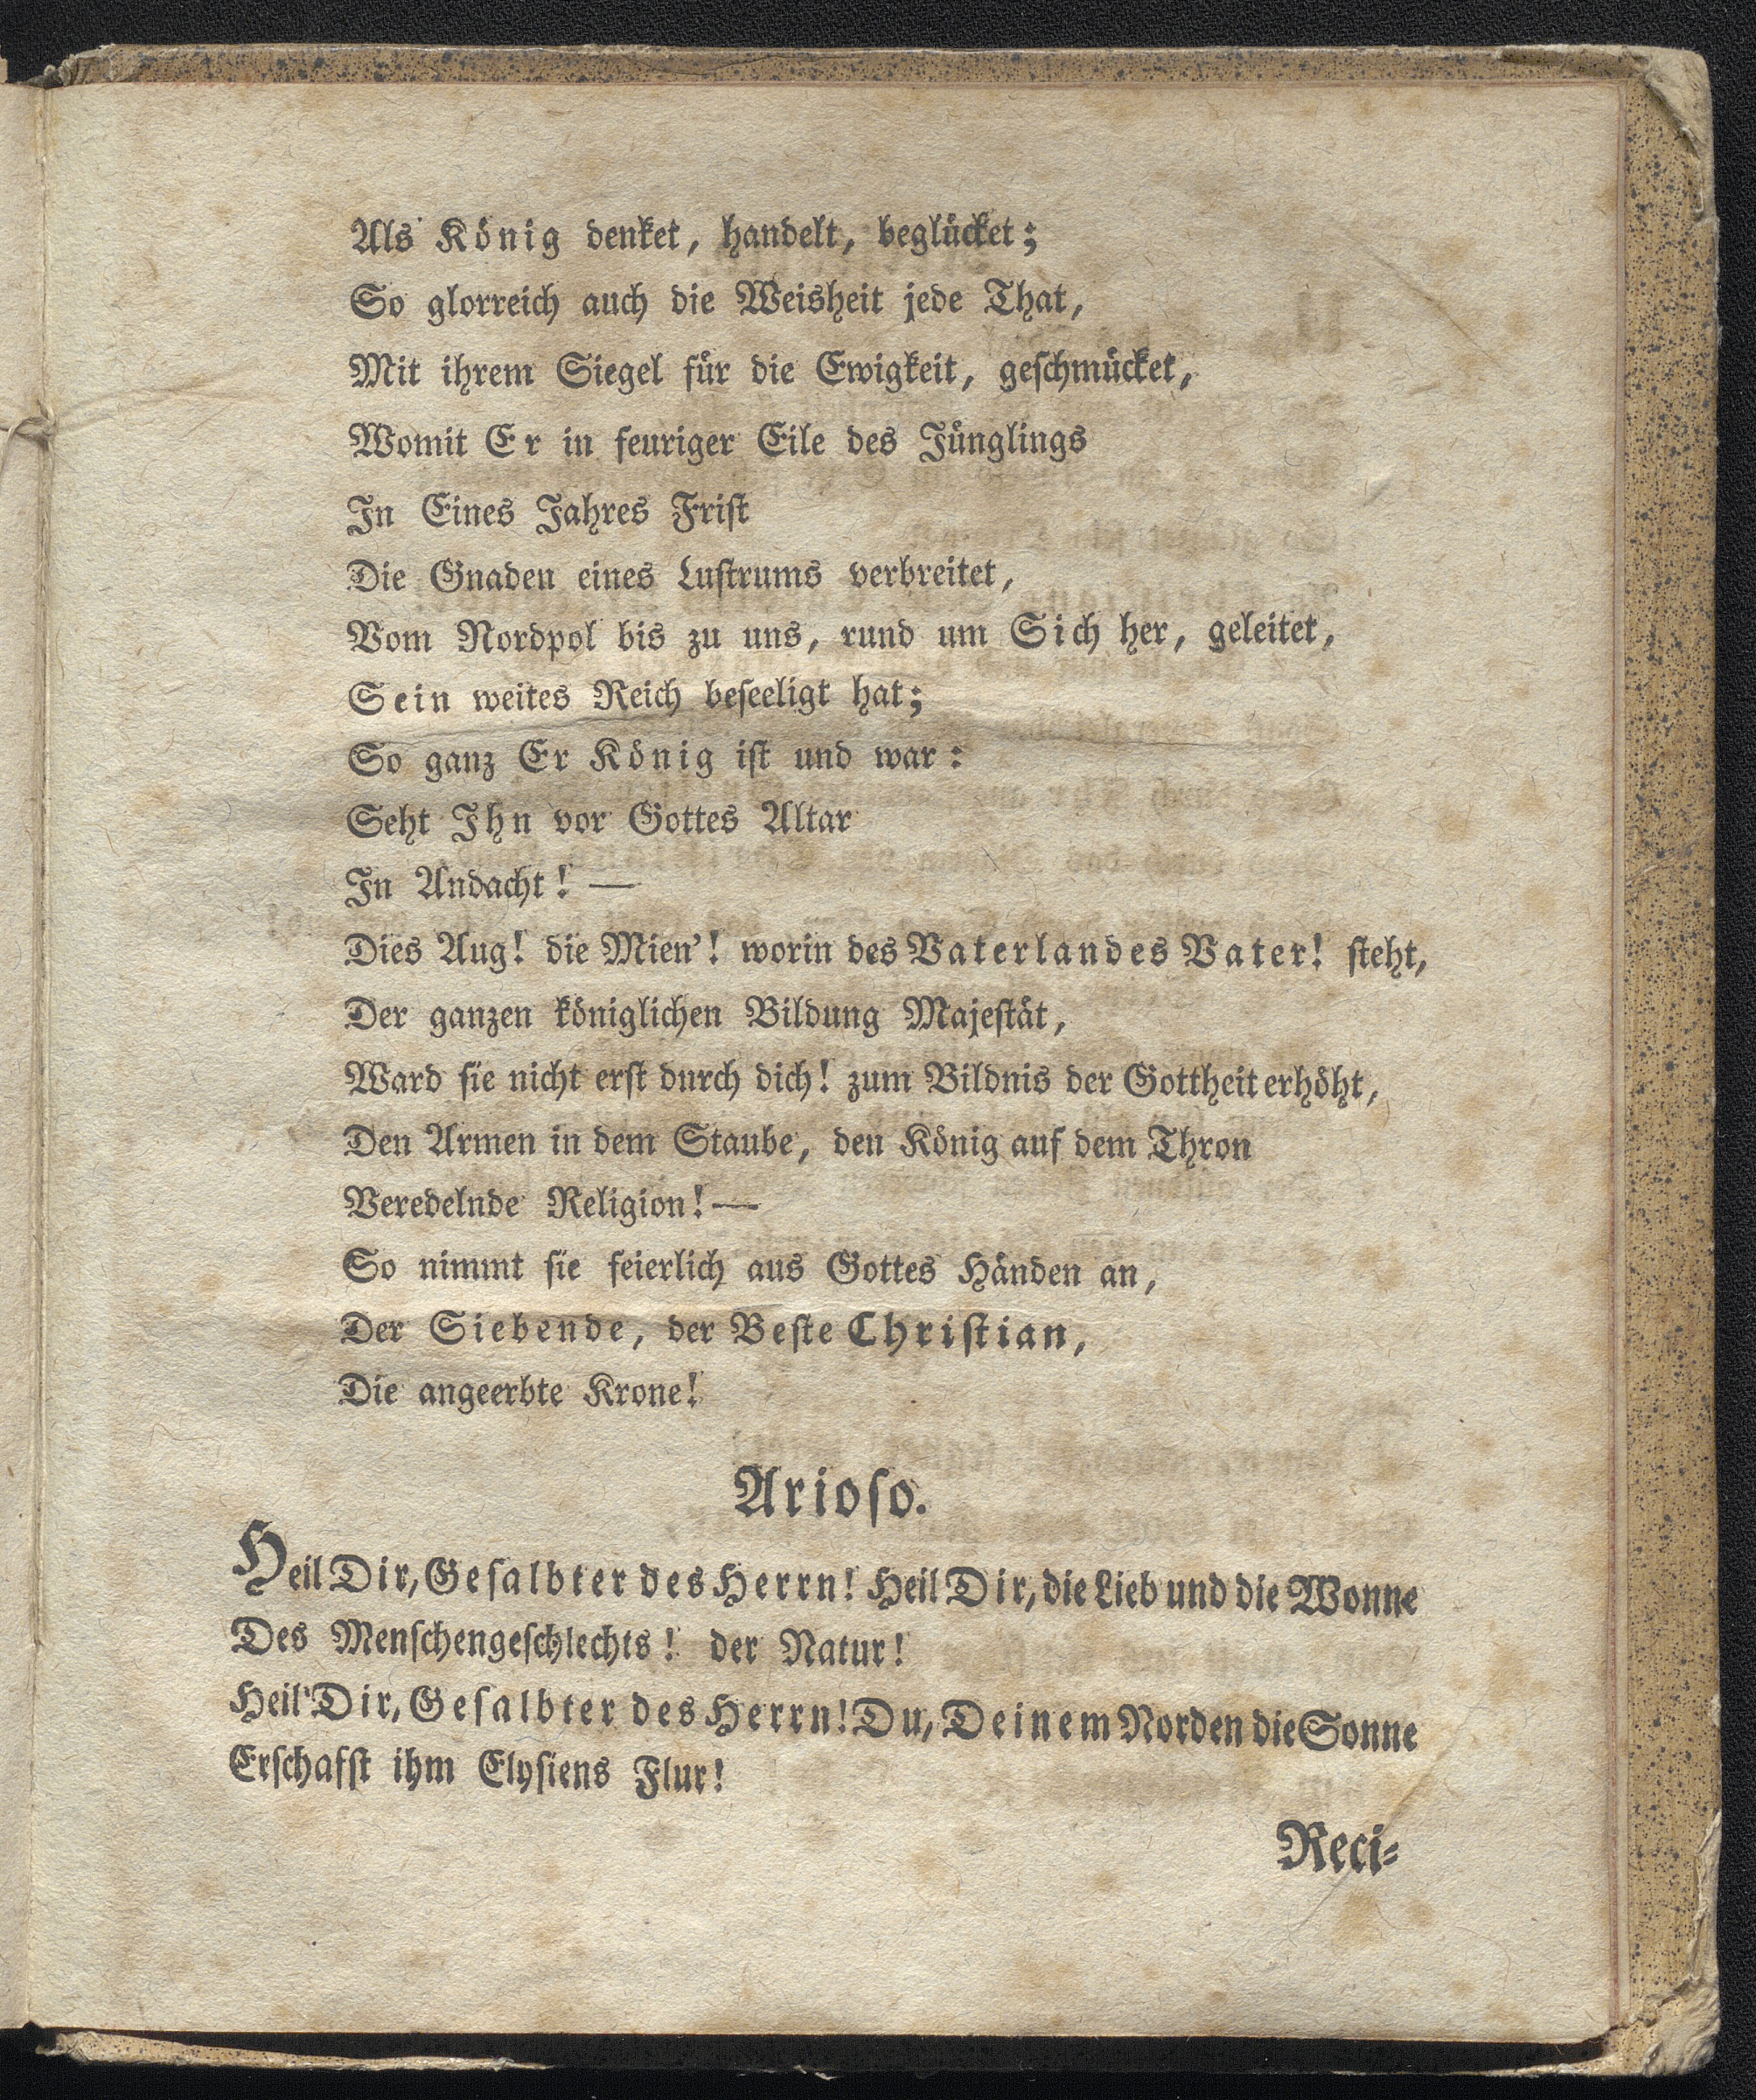 Als König denket, handelt, beglücket;
So glorreich auch die Weisheit jede That,
Mit ihrem Siegel für die Ewigkeit, geſchmücket,
Womit Er in feuriger Eile des Jünglings
In Eines Jahres Friſt
Die Gnaden eines Luſtrums verbreitet,
Vom Nordpol bis zu uns, rund um Sich her, geleitet,
Sein weites Reich beſeeligt hat;
So ganz Er König iſt und war:
Seht Ihn vor Gottes Altar
In Andacht! —
Dies Aug! die Mien'! worin des Vaterlandes Vater! ſteht,
Der ganzen königlichen Bildung Majeſtät,
Ward ſie nicht erſt durch dich! zum Bildnis der Gottheit erhöht,
Den Armen in dem Staube, den König auf dem Thron
Veredelnde Religion! —
So nimmt ſie feierlich aus Gottes Händen an,
Der Siebende, der Beſte Chriſtian,
Die angeerbte Krone!
Arioſo.
Heil Dir, Geſalbter des Herrn! Heil Dir, die Lieb und die Wonne
Des Menſchengeſchlechts! der Natur!
Heil Dir, Geſalbter des Herrn! Du, Deinem Norden die Sonne
Erſchafſt ihm Elyſiens Flur!
Reci-